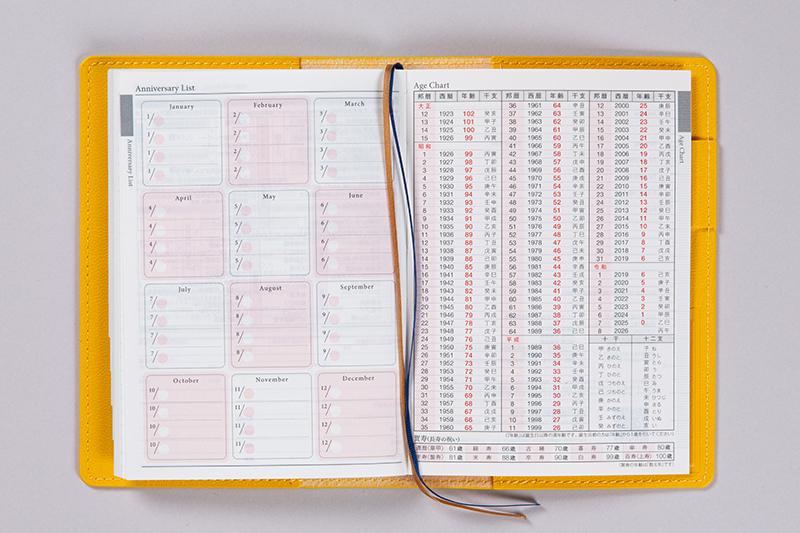 Anniversary List
January
1/
1/
1/
1/
February
2/
2/
2/
2/
March
3/
3/
3/
3/
April
4/
4/
4/
4/
May
5/
5/
5/
5/
June
6/
6/
6/
6/
July
7/
7/
7/
7/
August
8/
8/
8/
8/
September
9/
9/
9/
9/
October
10/
10/
10/
10/
November
11/
11/
11/
11/
December
12/
12/
12/
12/
Anniversary List
Age Chart
邦暦 西暦 年齢 干支
大正
12 1923 102 癸亥
13 1924 101 甲子
14 1925 100 乙丑
15 1926 99 丙寅
昭和
1 1926 99 丙寅
2 1927 98 丁卯
3 1928 97 戊辰
4 1929 96 己巳
5 1930 95 庚午
6 1931 94 辛未
7 1932 93 壬申
8 1933 92 癸酉
9 1934 91 甲戌
10 1935 90 乙亥
11 1936 89 丙子
12 1937 88 丁丑
13 1938 87 戊寅
14 1939 86 己卯
15 1940 85 庚辰
16 1941 84 辛巳
17 1942 83 壬午
18 1943 82 癸未
19 1944 81 甲申
20 1945 80 乙酉
21 1946 79 丙戌
22 1947 78 丁亥
23 1948 77 戊子
24 1949 76 己丑
25 1950 75 庚寅
26 1951 74 辛卯
27 1952 73 壬辰
28 1953 72 癸巳
29 1954 71 甲午
30 1955 70 乙未
31 1956 69 丙申
32 1957 68 丁酉
33 1958 67 戊戌
34 1959 66 己亥
35 1960 65 庚子
邦暦 西暦 年齢 干支
36 1961 64 辛丑
37 1962 63 壬寅
38 1963 62 癸卯
39 1964 61 甲辰
40 1965 60 乙巳
41 1966 59 丙午
42 1967 58 丁未
43 1968 57 戊申
44 1969 56 己酉
45 1970 55 庚戌
46 1971 54 辛亥
47 1972 53 壬子
48 1973 52 癸丑
49 1974 51 甲寅
50 1975 50 乙卯
51 1976 49 丙辰
52 1977 48 丁巳
53 1978 47 戊午
54 1979 46 己未
55 1980 45 庚申
56 1981 44 辛酉
57 1982 43 壬戌
58 1983 42 癸亥
59 1984 41 甲子
60 1985 40 乙丑
61 1986 39 丙寅
62 1987 38 丁卯
63 1988 37 戊辰
64 1989 36 己巳
平成
1 1989 36 己巳
2 1990 35 庚午
3 1991 34 辛未
4 1992 33 壬申
5 1993 32 癸酉
6 1994 31 甲戌
7 1995 30 乙亥
8 1996 29 丙子
9 1997 28 丁丑
10 1998 27 戊寅
11 1999 26 己卯
邦暦 西暦 年齢 干支
12 2000 25 庚辰
13 2001 24 辛巳
14 2002 23 壬午
15 2003 22 癸未
16 2004 21 甲申
17 2005 20 乙酉
18 2006 19 丙戌
19 2007 18 丁亥
20 2008 17 戊子
21 2009 16 己丑
22 2010 15 庚寅
23 2011 14 辛卯
24 2012 13 壬辰
25 2013 12 癸巳
26 2014 11 甲午
27 2015 10 乙未
28 2016 9 丙申
29 2017 8 丁酉
30 2018 7 戊戌
31 2019 6 己亥
令和
1 2019 6 己亥
2 2020 5 庚子
3 2021 4 辛丑
4 2022 3 壬寅
5 2023 2 癸卯
6 2024 1 甲辰
7 2025 0 乙巳
8 2026 丙午
十干 十二支
甲 きのえ
乙 きのと
丙 ひのえ
丁 ひのと
戊 つちのえ
己 つちのと
庚 かのえ
辛 かのと
壬 みずのえ
癸 みずのと
子 ね
丑 うし
寅 とら
卯 う
辰 たつ
巳 み
午 うま
未 ひつじ
申 さる
酉 とり
戌 いぬ
亥 い
賀寿(長寿の祝い)
還暦(華甲) 61歳 緑寿 66歳 古稀 70歳 喜寿 77歳 傘寿 80歳
半寿(盤寿) 81歳 米寿 88歳 卒寿 90歳 白寿 99歳 百寿(上寿) 100歳
(賀寿の年齢は「数え年」です)
Age Chart